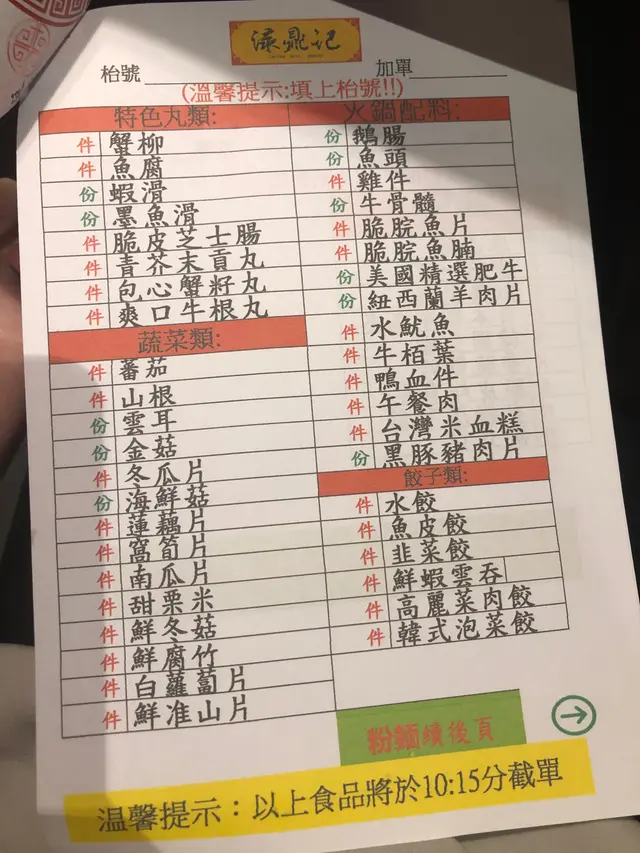 滾鼎记
枱號 加單
(溫馨提示:填上枱號!!)
特色丸類:
件 蟹柳
件 魚腐
份 蝦滑
份 墨魚滑
件 脆皮芝士腸
件 青芥末貢丸
件 包心蟹籽丸
件 爽口牛根丸
蔬菜類:
件 蕃茄
件 山根
份 雲耳
份 金菇
件 冬瓜片
份 海鮮菇
件 蓮藕片
件 窩筍片
件 南瓜片
件 甜栗米
件 鮮冬菇
件 鮮腐竹
件 白蘿蔔片
件 鮮准山片
火鍋配料:
份 鵝腸
份 魚頭
件 雞件
份 牛骨髓
件 脆脘魚片
件 脆脘魚腩
份 美國精選肥牛
份 紐西蘭羊肉片
件 水魷魚
件 牛栢葉
件 鴨血件
件 午餐肉
件 台灣米血糕
份 黑豚豬肉片
餃子類:
件 水餃
件 魚皮餃
件 韭菜餃
件 鮮蝦雲吞
件 高麗菜肉餃
件 韓式泡菜餃
粉麵續後頁
溫馨提示：以上食品將於10:15分截單